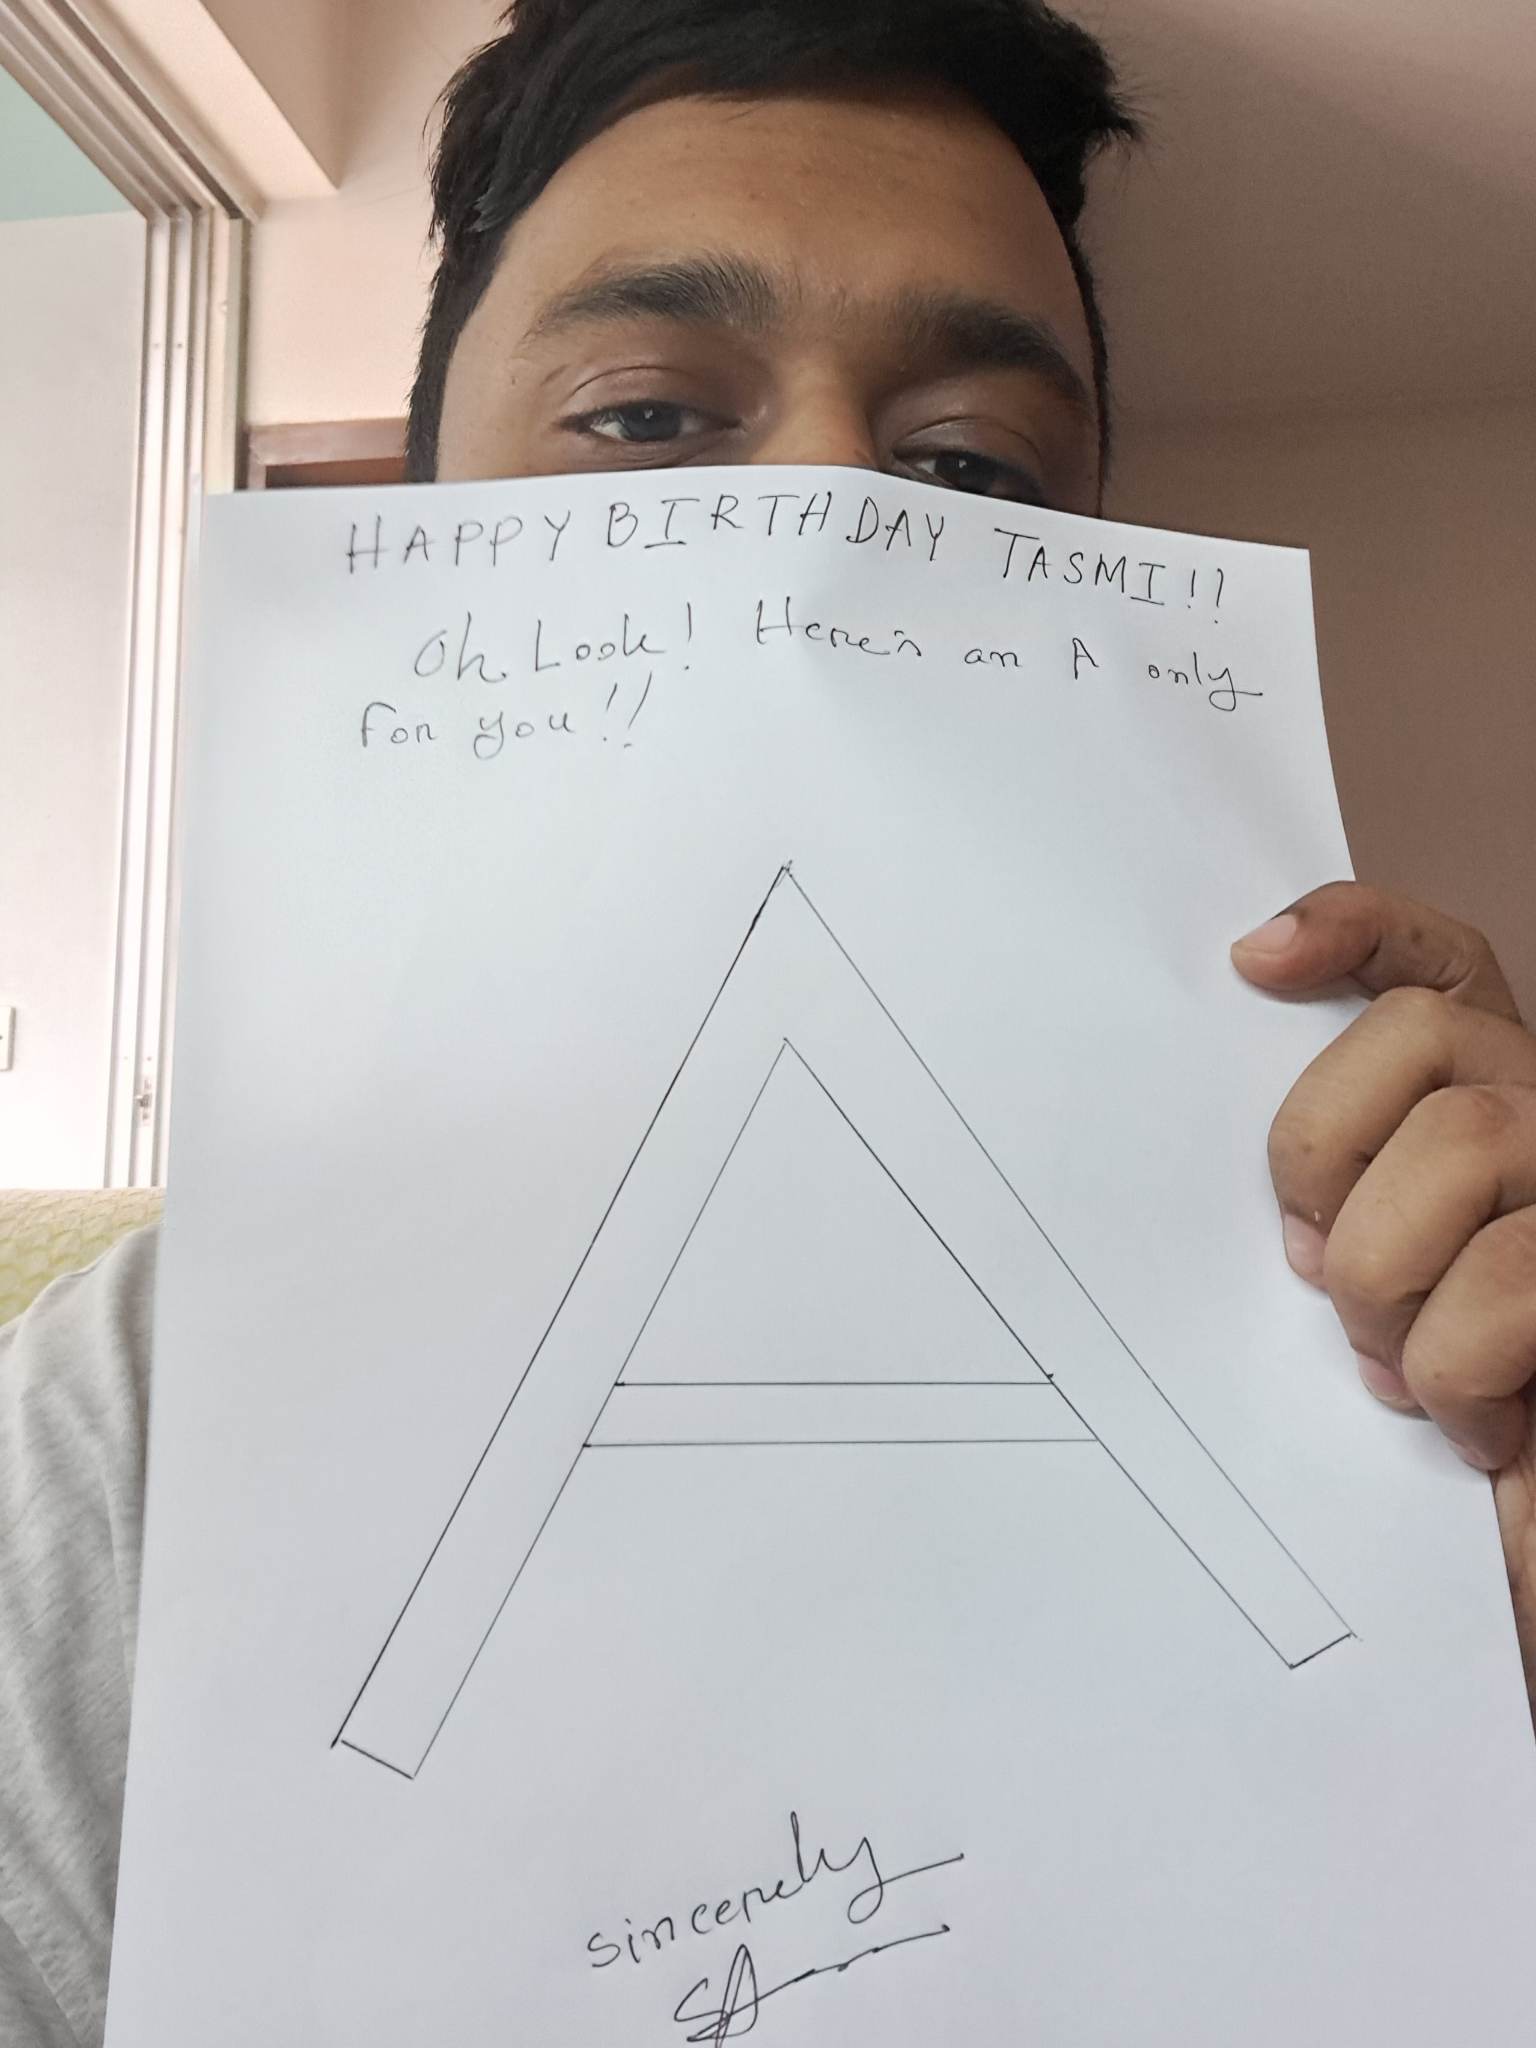 HAPPY BIRTHDAY TASMI!!
Oh Look! Here's an A only
for you!!
A
sincerely